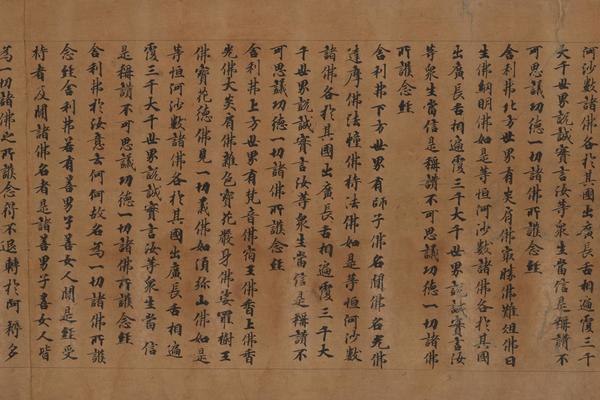 河沙數諸佛各於其國出廣長舌相遍覆三千
大千世界說誠實言汝等衆生當信是稱讚不
可思議功德一切諸佛所護念經
舍利弗北方世界有炎肩佛最勝佛難俎佛日
生佛網明佛如是等恒河沙數諸佛各於其國
出廣長舌相遍覆三千大千世界說誠實言汝
等衆生當信是稱讚不可思議功德一切諸佛
所護念經
舍利弗下方世界有師子佛名聞佛名光佛
達摩佛法幢佛持法佛如是等恒河沙數
諸佛各於其國出廣長舌相遍覆三千大
千世界說誠實言汝等衆生當信是稱讚不
可思議功德一切諸佛所護念經
舍利弗上方世界有梵音佛宿王佛香上佛香
光佛大炎肩佛雜色寶花嚴身佛娑羅樹王
佛寶花德佛見一切義佛如須弥山佛如是
等恒河沙數諸佛各於其國出廣長舌相遍
覆三千大千世界說誠實言汝等衆生當信
是稱讚不可思議功德一切諸佛所護念經
舍利弗於汝意云何何故名為一切諸佛所護
念經舍利弗若有善男子善女人聞是經受
持者及聞諸佛名者是諸善男子善女人皆
為一切諸佛之所護念得不退轉於阿耨多